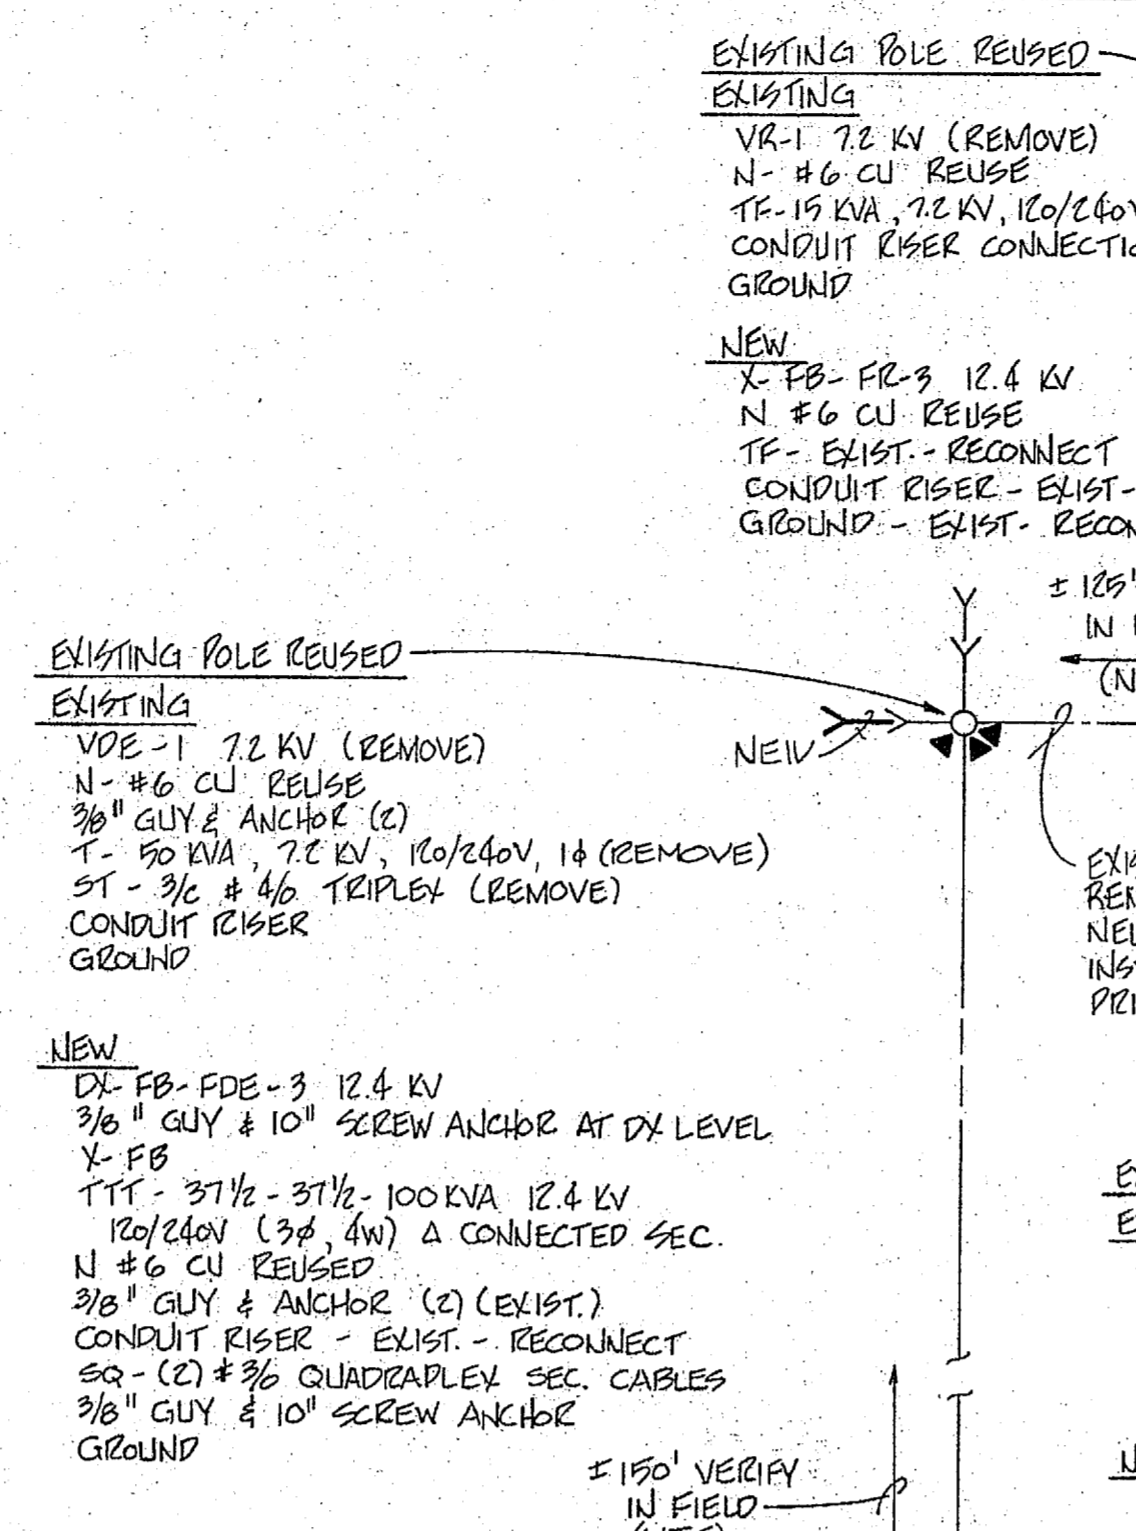 EXISTING POLE REUSED
EXISTING
VR-1 7.2 KV (REMOVE)
N- #6 CU REUSE
TF-15 KVA, 7.2 KV, 120/240V
CONDUIT RISER CONNECTIO
GROUND
NEW
X- FB- FR-3 12.4 KV
N #6 CU REUSE
TF- EXIST.- RECONNECT
CONDUIT RISER - EXIST-
GROUND - EXIST- RECON
± 125'
IN
(N
EXISTING POLE REUSED
EXISTING
VDE-1 7.2 KV (REMOVE)
N- #6 CU REUSE
3/8" GUY & ANCHOR (2)
T- 50 KVA, 7.2 KV, 120/240V, 1ϕ (REMOVE)
ST - 3/C # 4/0 TRIPLEX (REMOVE)
CONDUIT RISER
GROUND
NEW
EXIS
REM
NEU
INST
PRI
NEW
DX- FB- FDE-3 12.4 KV
3/8" GUY & 10" SCREW ANCHOR AT DX LEVEL
X- FB
TTT - 37 1/2 - 37 1/2 - 100 KVA 12.4 KV
120/240V (3ϕ, 4W) Δ CONNECTED SEC.
N #6 CU REUSED
3/8" GUY & ANCHOR (2) (EXIST.)
CONDUIT RISER - EXIST. - RECONNECT
SQ - (2) #3/0 QUADRAPLEX SEC. CABLES
3/8" GUY & 10" SCREW ANCHOR
GROUND
E
E
N
± 150' VERIFY
IN FIELD